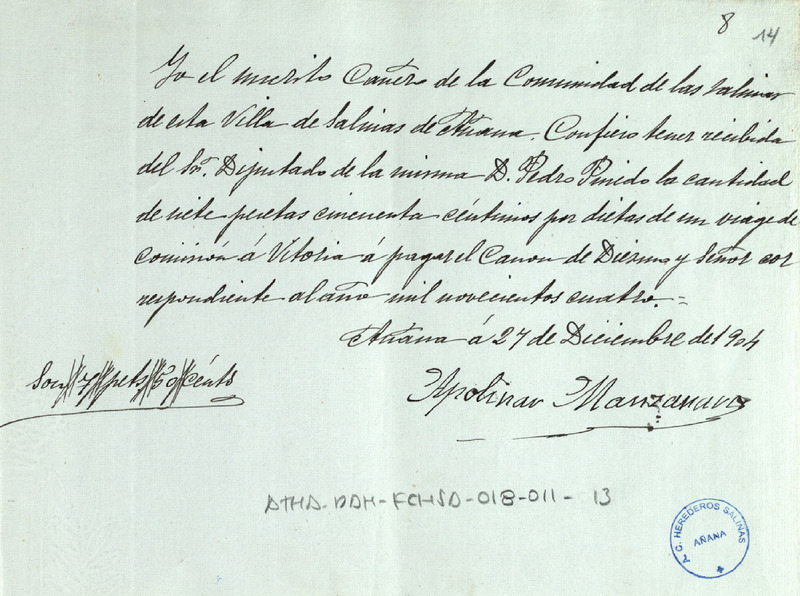 8
14
Yo el inscrito Cañero de la Comunidad de las Salinas
de esta Villa de Salinas de Añana. Confieso tener recibida
del Sr. Diputado de la misma D. Pedro Pinedo la cantidad
de siete pesetas cincuenta céntimos por dietas de un viage de
comisión á Vitoria á pagar el Canon de Diezmo y Señor cor
respondiente al año mil novecientos cuatro.=
Añana á 27 de Diciembre de 1904
Son//7//pets//50//cénts
Apolinar Manzanares
ATHA-DAH-FCHSA-018-011-13
C. HEREDEROS SALINAS
AÑANA